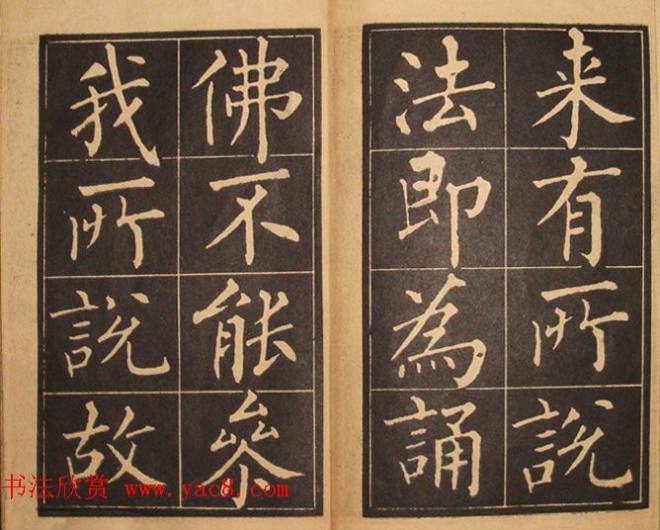 来有所說
法即為誦
佛不能叅
我所說故
书法欣赏 www.yac8.com